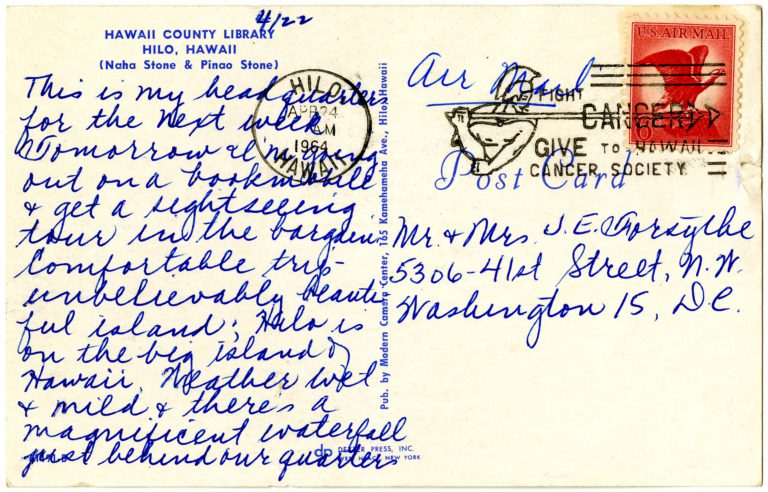 4/22
HAWAII COUNTY LIBRARY
HILO, HAWAII
(Naha Stone & Pinao Stone)
This is my headquarters
for the next week
Tomorrow I'm going
out on a bookmobile
& get a sightseeing
tour in the bargain.
Comfortable trip -
unbelievably beauti-
ful island; Hilo is
on the big island of
Hawaii. Weather wet
& mild & there's a
magnificent waterfall
just behind our quarters
HILO
APR 24
AM
1964
HAWAII
Pub. by Modern Camera Center, 165 Kamehameha Ave., Hilo, Hawaii
dp DEXTER PRESS, INC.
WEST NYACK, NEW YORK
Air Mail
U.S. AIR MAIL
6¢
FIGHT
CANCER!
GIVE TO HAWAII
CANCER SOCIETY
Post Card
Mr. & Mrs. J. E. Forsythe
5306-41st Street, N.W.
Washington 15, D.C.